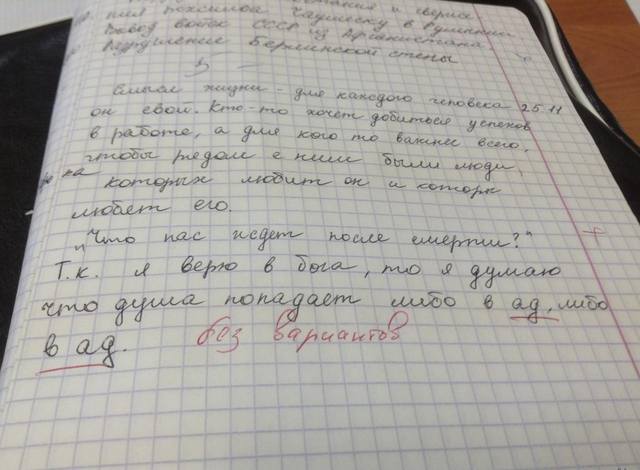 Вывод войск СССР из Афганистана
Разрушение Берлинской стены
Смысл жизни - для каждого человека 25.11
он свой. Кто-то хочет добиться успехов
в работе, а для кого то важнее всего,
чтобы рядом с ним были люди,
которых любит он и которые
любят его.
"Что нас ждет после смерти?"
Т.к. я верю в бога, то я думаю
что душа попадает либо в ад, либо
в ад. без вариантов